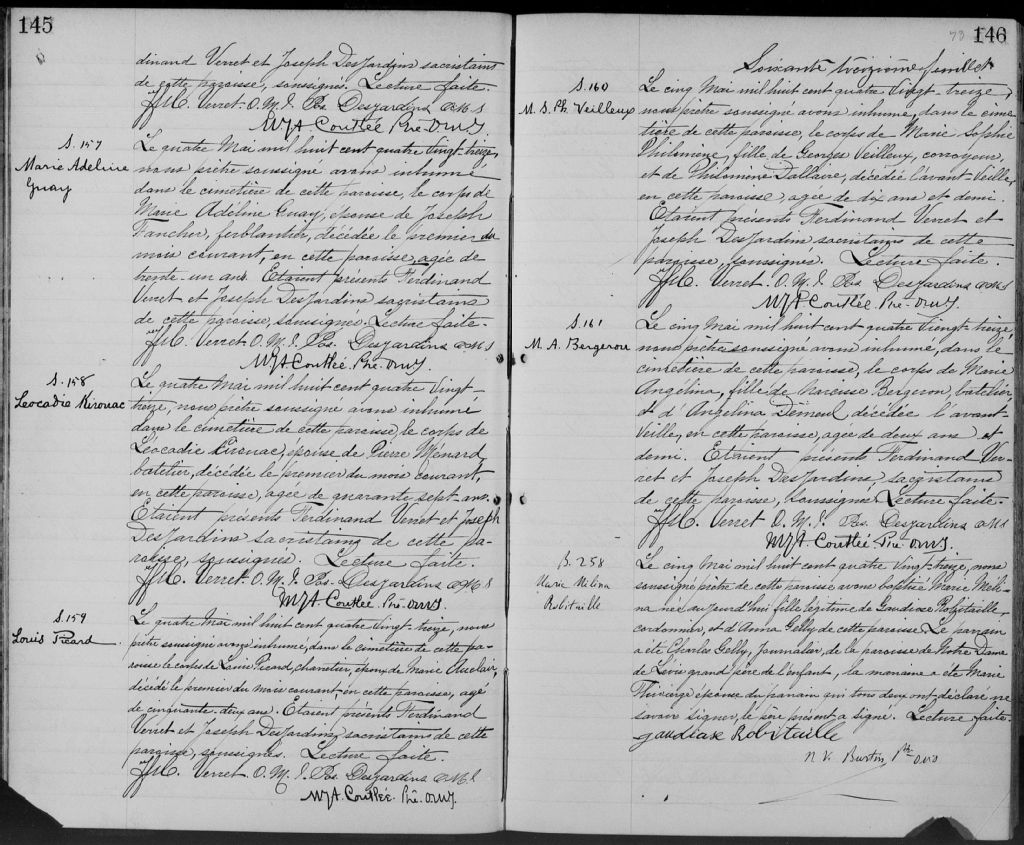 145
dinand Verret et Joseph DesJardins sacristains
de cette paroisse, soussignés. Lecture faite.
Verret. O. M. I. Pos. Desjardins OMI
Couttée Ptre. O.M.I.
S. 157
Marie Adeline
Guay
Le quatre Mai mil huit cent quatre vingt-treize,
nous prêtre soussigné avons inhumé
dans le cimetière de cette paroisse, le corps de
Marie Adéline Guay, épouse de Joseph
Fancher, ferblantier, décédée le premier du
mois courant, en cette paroisse, agée de
trente-un ans. Etaient présents Ferdinand
Verret et Joseph DesJardins sacristains
de cette paroisse, soussignés. Lecture faite.
Verret O. M. I. Pos. Desjardins OMI
Couttée. Ptre. O.M.I.
S. 158
Léocadie Kirouac
Le quatre Mai mil huit cent quatre vingt-
treize, nous prêtre soussigné avons inhumé
dans le cimetière de cette paroisse, le corps de
Léocadie Kirouac, épouse de Pierre Ménard
batelier, décédée le premier du mois courant,
en cette paroisse, agée de quarante sept ans.
Etaient présents Ferdinand Verret et Joseph
DesJardins sacristains de cette pa-
roisse, soussignés. Lecture faite.
Verret. O. M. I. Pos. Desjardins OMI
Couttée. Ptre. O.M.I.
S. 159
Louis Picard
Le quatre Mai mil huit cent quatre vingt treize, nous
prêtre soussigné avons inhumé, dans le cimetière de cette pa-
roisse le corps de Louis Picard, charretier, époux de Marie Auclair,
décédé le premier du mois courant en cette paroisse, agé
de cinquante-deux ans. Etaient présents Ferdinand
Verret et Joseph DesJardins, sacristains de cette
paroisse, soussignés. Lecture faite.
Verret. O. M. I. Pos. Desjardins O.M.I.
Couttée. Ptre. O.M.I.
73 146
Soixante treizième feuillet
S. 160
M. S. Ph. Veilleux
Le cinq Mai mil huit cent quatre vingt-treize,
nous prêtre soussigné avons inhumé, dans le cime-
tière de cette paroisse, le corps de Marie Sophie
Philomène, fille de Georges Veilleux, corroyeur,
et de Philomène Dallaire, décédée l'avant-Veille,
en cette paroisse, agée de dix ans et demi.
Etaient présents Ferdinand Verret et
Joseph DesJardins sacristains de cette
paroisse, soussignés. Lecture faite.
Verret. O. M. I. Pos Desjardins OMI
Couttée. Ptre. O.M.I.
S. 161
M. A. Bergeron
Le cinq Mai mil huit cent quatre Vingt treize,
nous prêtre soussigné avons inhumé, dans le
cimetière de cette paroisse, le corps de Marie
Angélina, fille de Narcisse Bergeron, batelier,
et d'Angélina Demeul décédée l'avant-
Veille, en cette paroisse, agée de deux ans et
demi. Etaient présents Ferdinand Ver-
ret et Joseph DesJardins, sacristains
de cette paroisse, soussignés. Lecture faite.
Verret O. M. I. Pos. Desjardins OMI
Couttée Ptre. O.M.I.
B. 258
Marie Melina
Robitaille
Le cinq Mai mil huit cent quatre Vingt treize, nous
soussigné prêtre de cette paroisse avons baptisé Marie Méli-
na née aujourd'hui fille légitime de Gaudiose Robitaille,
cordonnier, et d'Anna Gelly de cette paroisse. Le parrain
a été Charles Gelly, journalier, de la paroisse de Notre Dame
de Lévis grand père de l'enfant, la marraine a été Marie
Thivierge épouse du parrain qui tous deux ont déclaré ne
savoir signer, le père présent a signé. Lecture faite.
gaudiose Robitaille
Ptre O.M.I.